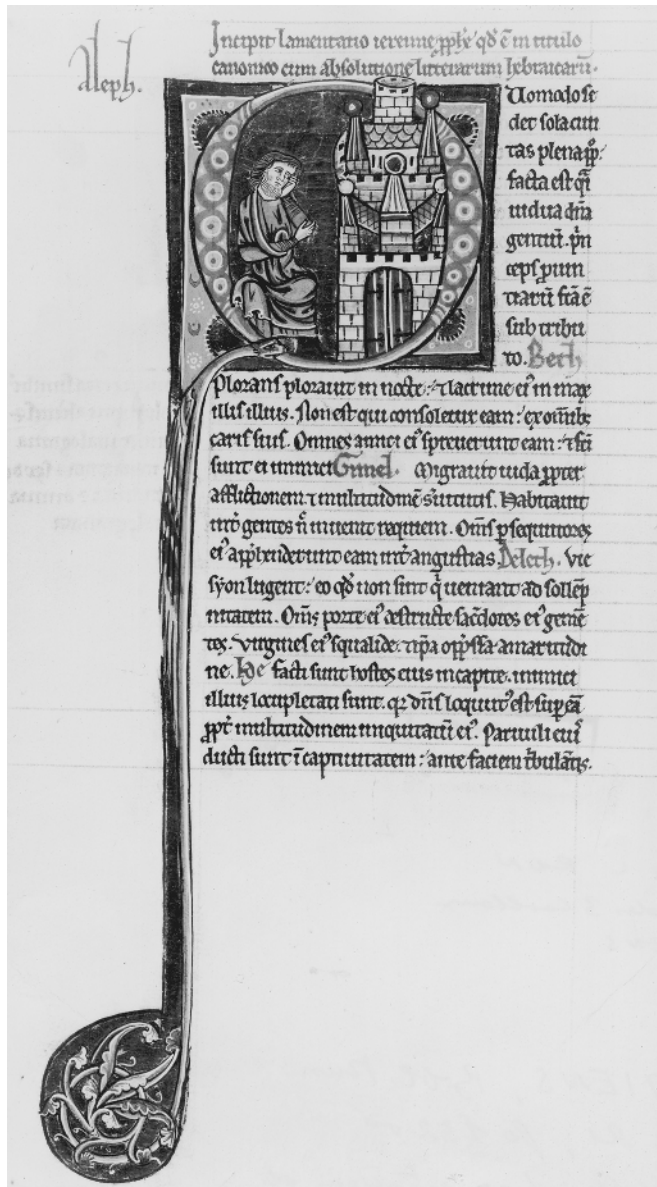 Aleph.
Incipit lamentatio ieremie ꝓph̄e qd̄ ē in titulo
canonico cum absolutione litterarum hebraicarū.
Uomodo se
det sola ciui
tas plena pp̄.
facta est q̄i
uidua dn̄a
gentiū. pͥn
ceps ꝓuin
tiarū fc̄a ē
sub tribu
to. Beth
Plorans plorauit in nocte: ⁊ lacrime eiꝰ in max
illis illius. Non est qui consoletur eam: ex omībꝫ
caris suis. Omnes amici eiꝰ spreuerunt eam: ⁊ fc̄i
sunt ei inimici Gimel. Migrauit iuda ꝓpter
afflictionem ⁊ multitudinē suitutis. Habitauit
int̄ gentes n̄ inuenit requiem. Om̄s ꝑsequutores
eiꝰ app̄henderunt eam int̄ angustias. Deleth. Vie
syon lugent: eo qd̄ non sint q̇ ueniant ad sollēp
nitatem. Om̄s porte eiꝰ destructe sac̄dotes eiꝰ gemē
tes. virgines eiꝰ squalide. ⁊ ip̄a opp̄ssa amaritudi
ne. he facti sunt hostes eius in capite. inimici
illiꝰ locupletati sunt. qꝛ dn̄s loquutꝰ est suꝑ eā
ꝓpt̄ multitudinem iniquitatū eiꝰ. Paruuli euiꝰ
ducti sunt ī captiuitatem: ante faciem t̄bulātis.